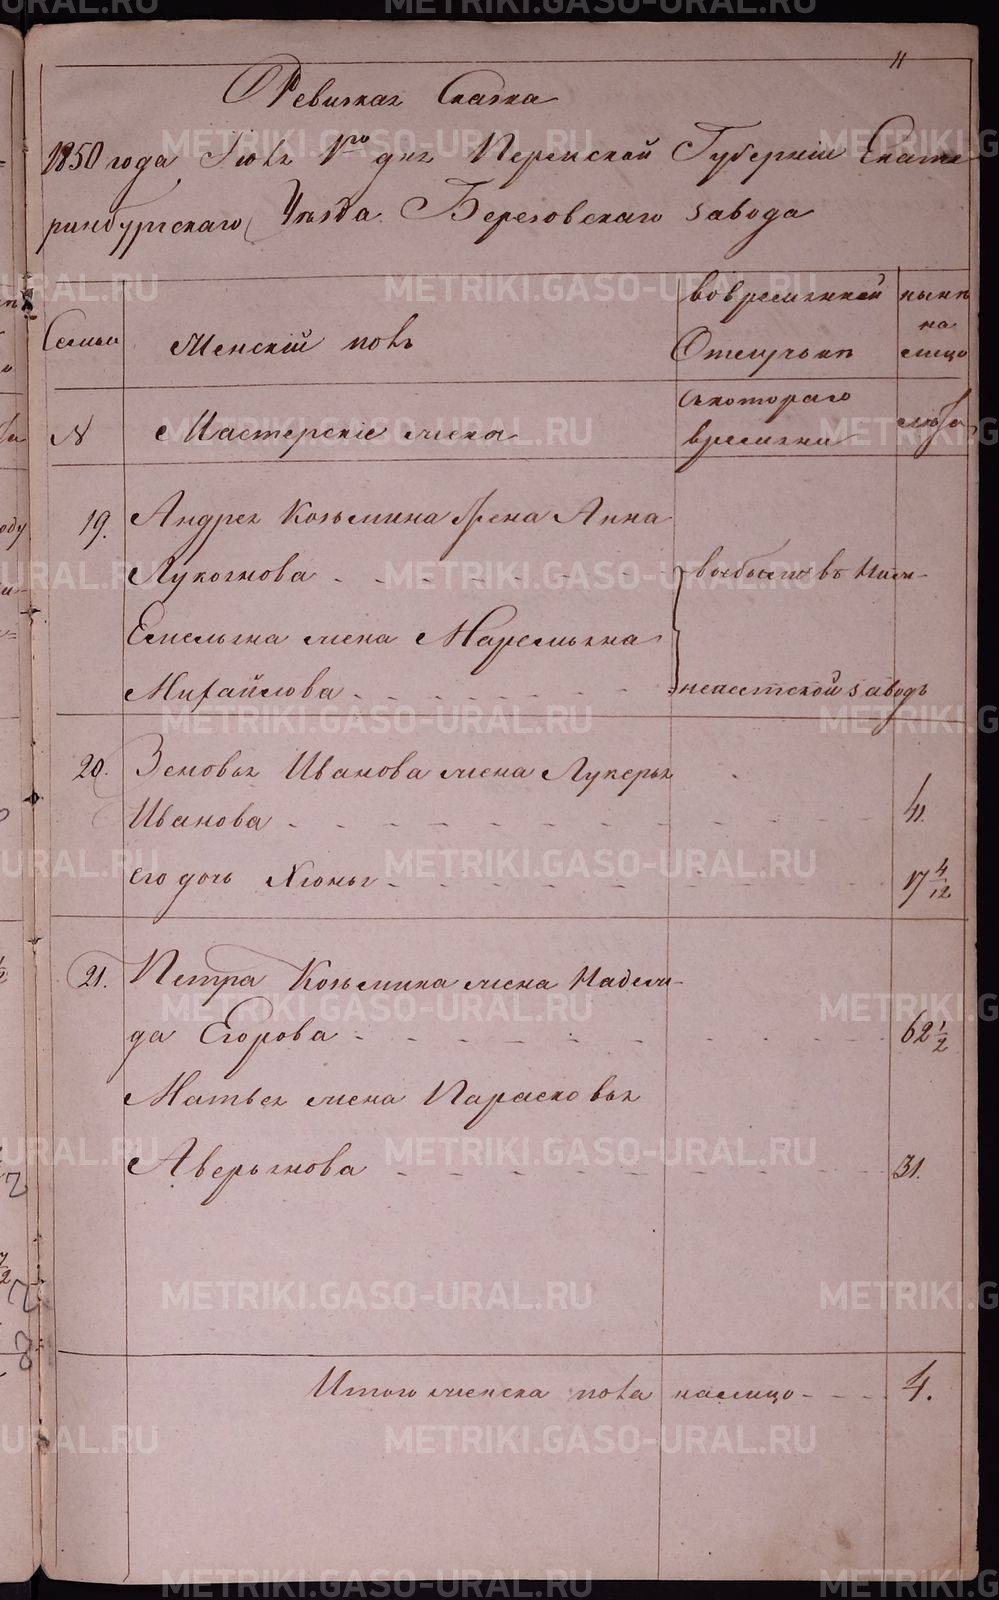 11
Ревизкая Сказка
1850 года Iюля 1го дня Пермской Губернiи Екате
ринбургскаго Уѣзда Березовскаго завода
Семьи
Женскiй полъ
во временной
Отлучкѣ
нынѣ
на
лицо
N
Мастерскiе жены
съ котораго
времени
лѣта
19.
Андрея Козьмина жена Анна
Лукоянова
выбыли въ Ниж-
Емельяна жена Маремьяна
Михайлова
неисетской заводъ
20.
Зеновья Иванова жена Лукерья
Иванова
41.
его дочь Хионья
17 4/12
21.
Петра Козьмина жена Надеж-
да Егорова
62 1/2
Матвея жена Парасковья
Аверьянова
31.
Итого женска пола на лицо
4.
METRIKI.GASO-URAL.RU